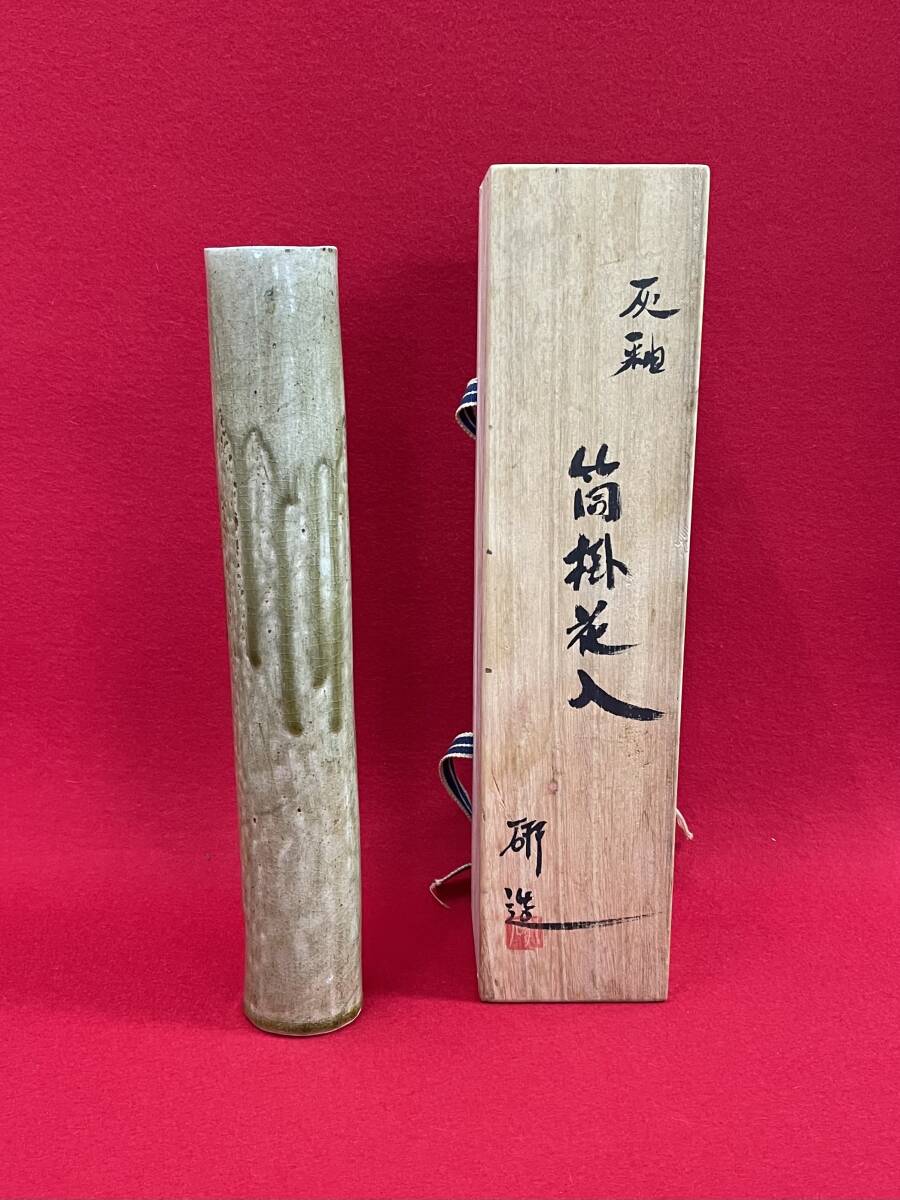 灰釉
筒掛花入
研造